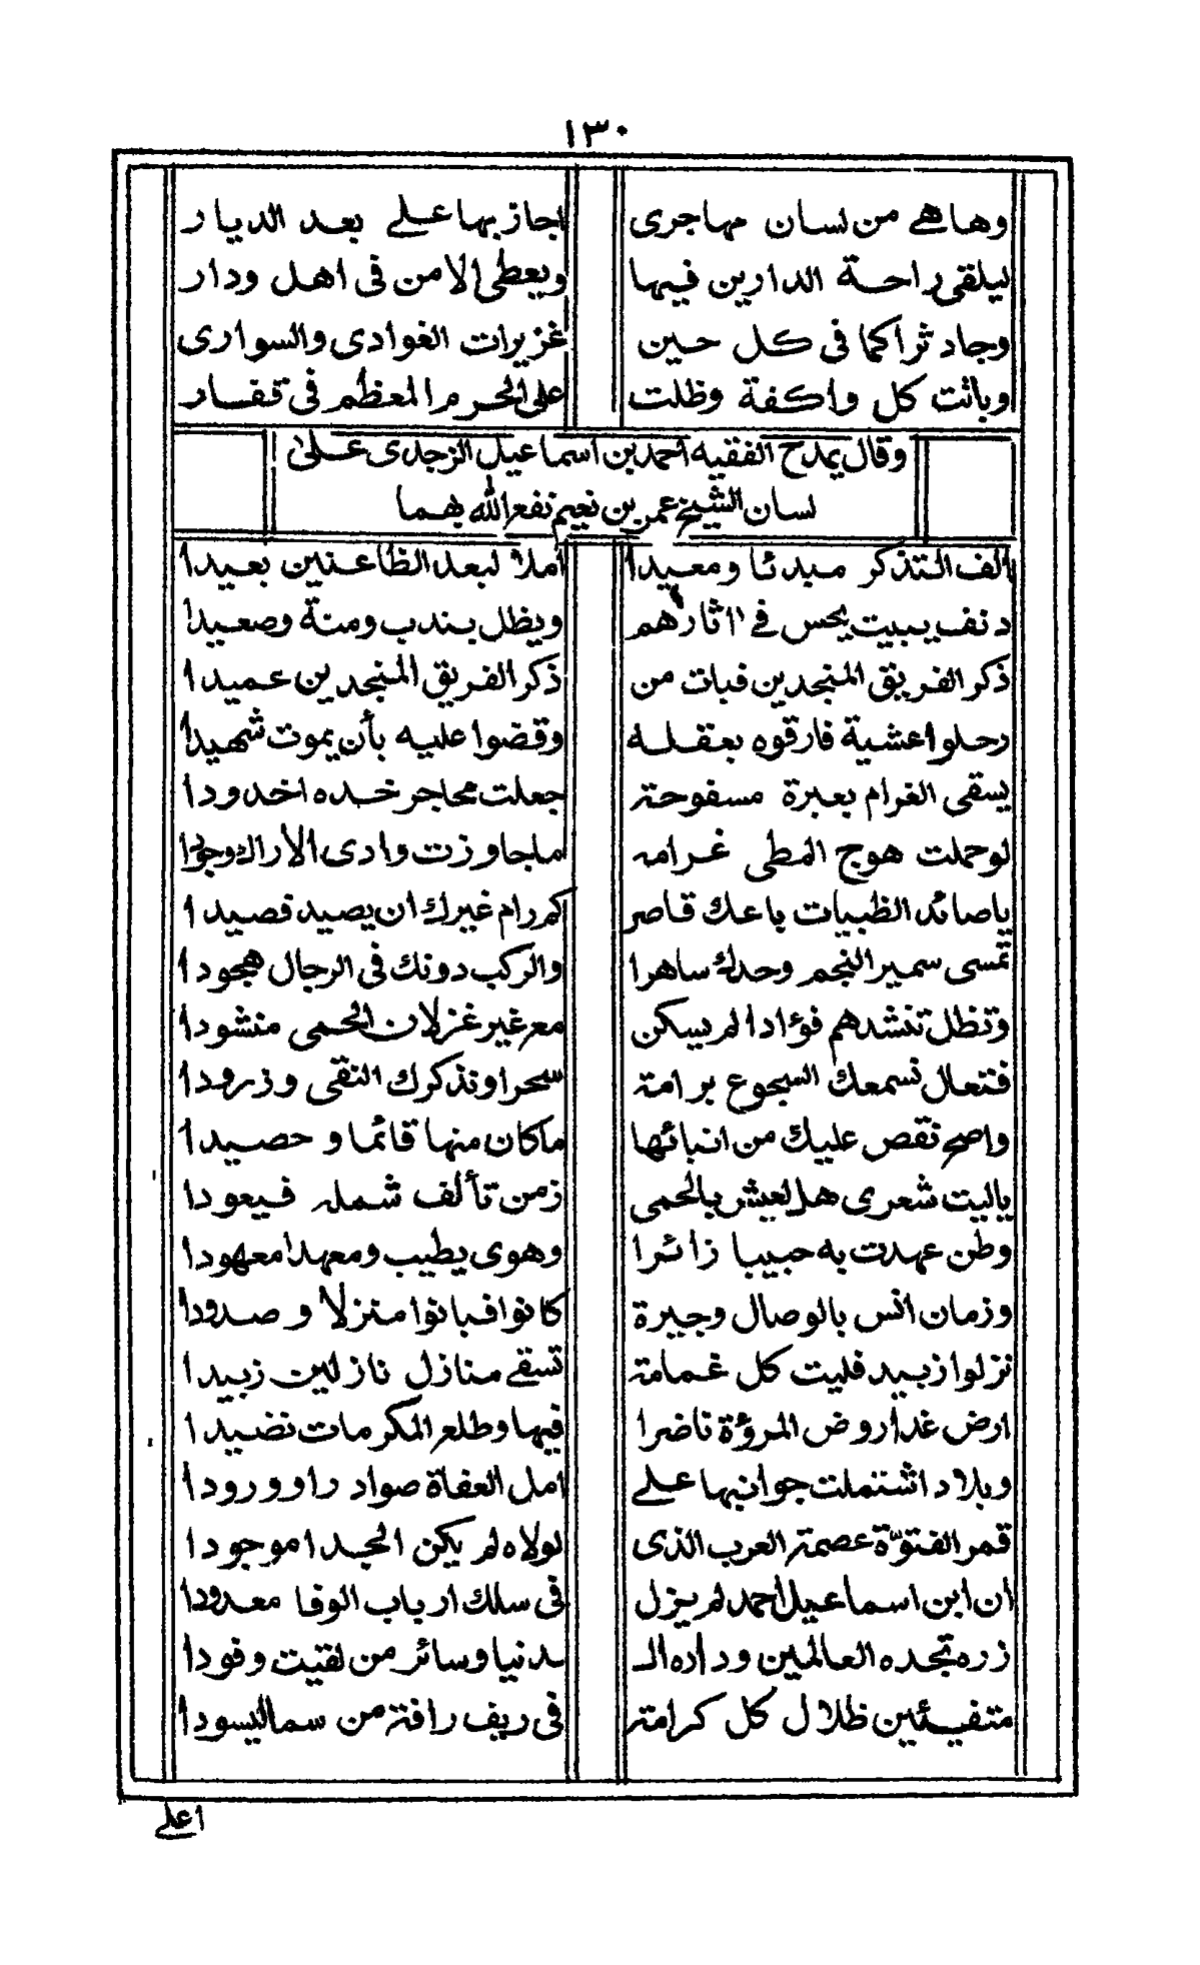 ١٣٠
وهاهي من لسان مهاجرى اجاز بها على بعد الديار
ليلقى راحة الدارين فيها ويعطى الامن فى اهل ودار
وجاد ثراكما فى كل حين غزيرات الغوادى والسوارى
وباتت كل واكفة وظلت على الحرم المعظم فى قفار
وقال يمدح الفقيه احمد بن اسماعيل الزجدى على
لسان الشيخ عمر بن نعيم نفع الله بهما
الف التذكر مبدئا ومعيدا املا لبعد الظاعنين بعيدا
دنف يبيت يحس فى اثارهم ويظل يندب ومنة وصعيدا
ذكر الفريق المنجدين فبات من ذكر الفريق المنجدين عميدا
رحلوا عشية فارقوه بعقله وقضوا عليه بأن يموت شهيدا
يسقى الغرام بعبرة مسفوحة جعلت محاجر خده اخدودا
لو حملت هوج المطى غرامه ماجاوزت وادى الاراك وجودا
ياصائد الظبيات باعك قاصر كم رام غيرك ان يصيد فصيدا
تمسى سمير النجم وحدك ساهرا والركب دونك فى الرحال هجودا
وتظل تنشدهم فؤادا لم يسكن مع غير غزلان الحمى منشودا
فتعال نسمعك السجوع برامة سحرا ونذكرك النقى وزرودا
واصح نقص عليك من انبائها ماكان منها قائما وحصيدا
ياليت شعرى هل لعيش بالحمى زمن تألف شمله فيعودا
وطن عهدت به حبيبا زائرا وهوى يطيب ومعهدا معهودا
وزمان انس بالوصال وجيرة كانوا فبانوا منزلا وصدودا
نزلوا زبيد فليت كل غمامة تسقى منازل نازلين زبيدا
ارض غدا روض المروءة ناضرا فيها وطلع المكرمات نضيدا
وبلاد اشتملت جوانبها على امل العفاة صوادراو ورودا
قمر الفتوّة عصمة العرب الذى لولاه لم يكن المجدا موجودا
ان ابن اسماعيل احمد لم يزل فى سلك ارباب الوفا معدودا
زره تجده العالمين وداره الـ ـدنيا وسائر من لقيت وفودا
متفيئين ظلال كل كرامة فى ريف رافة من سما ليسودا
اعلى